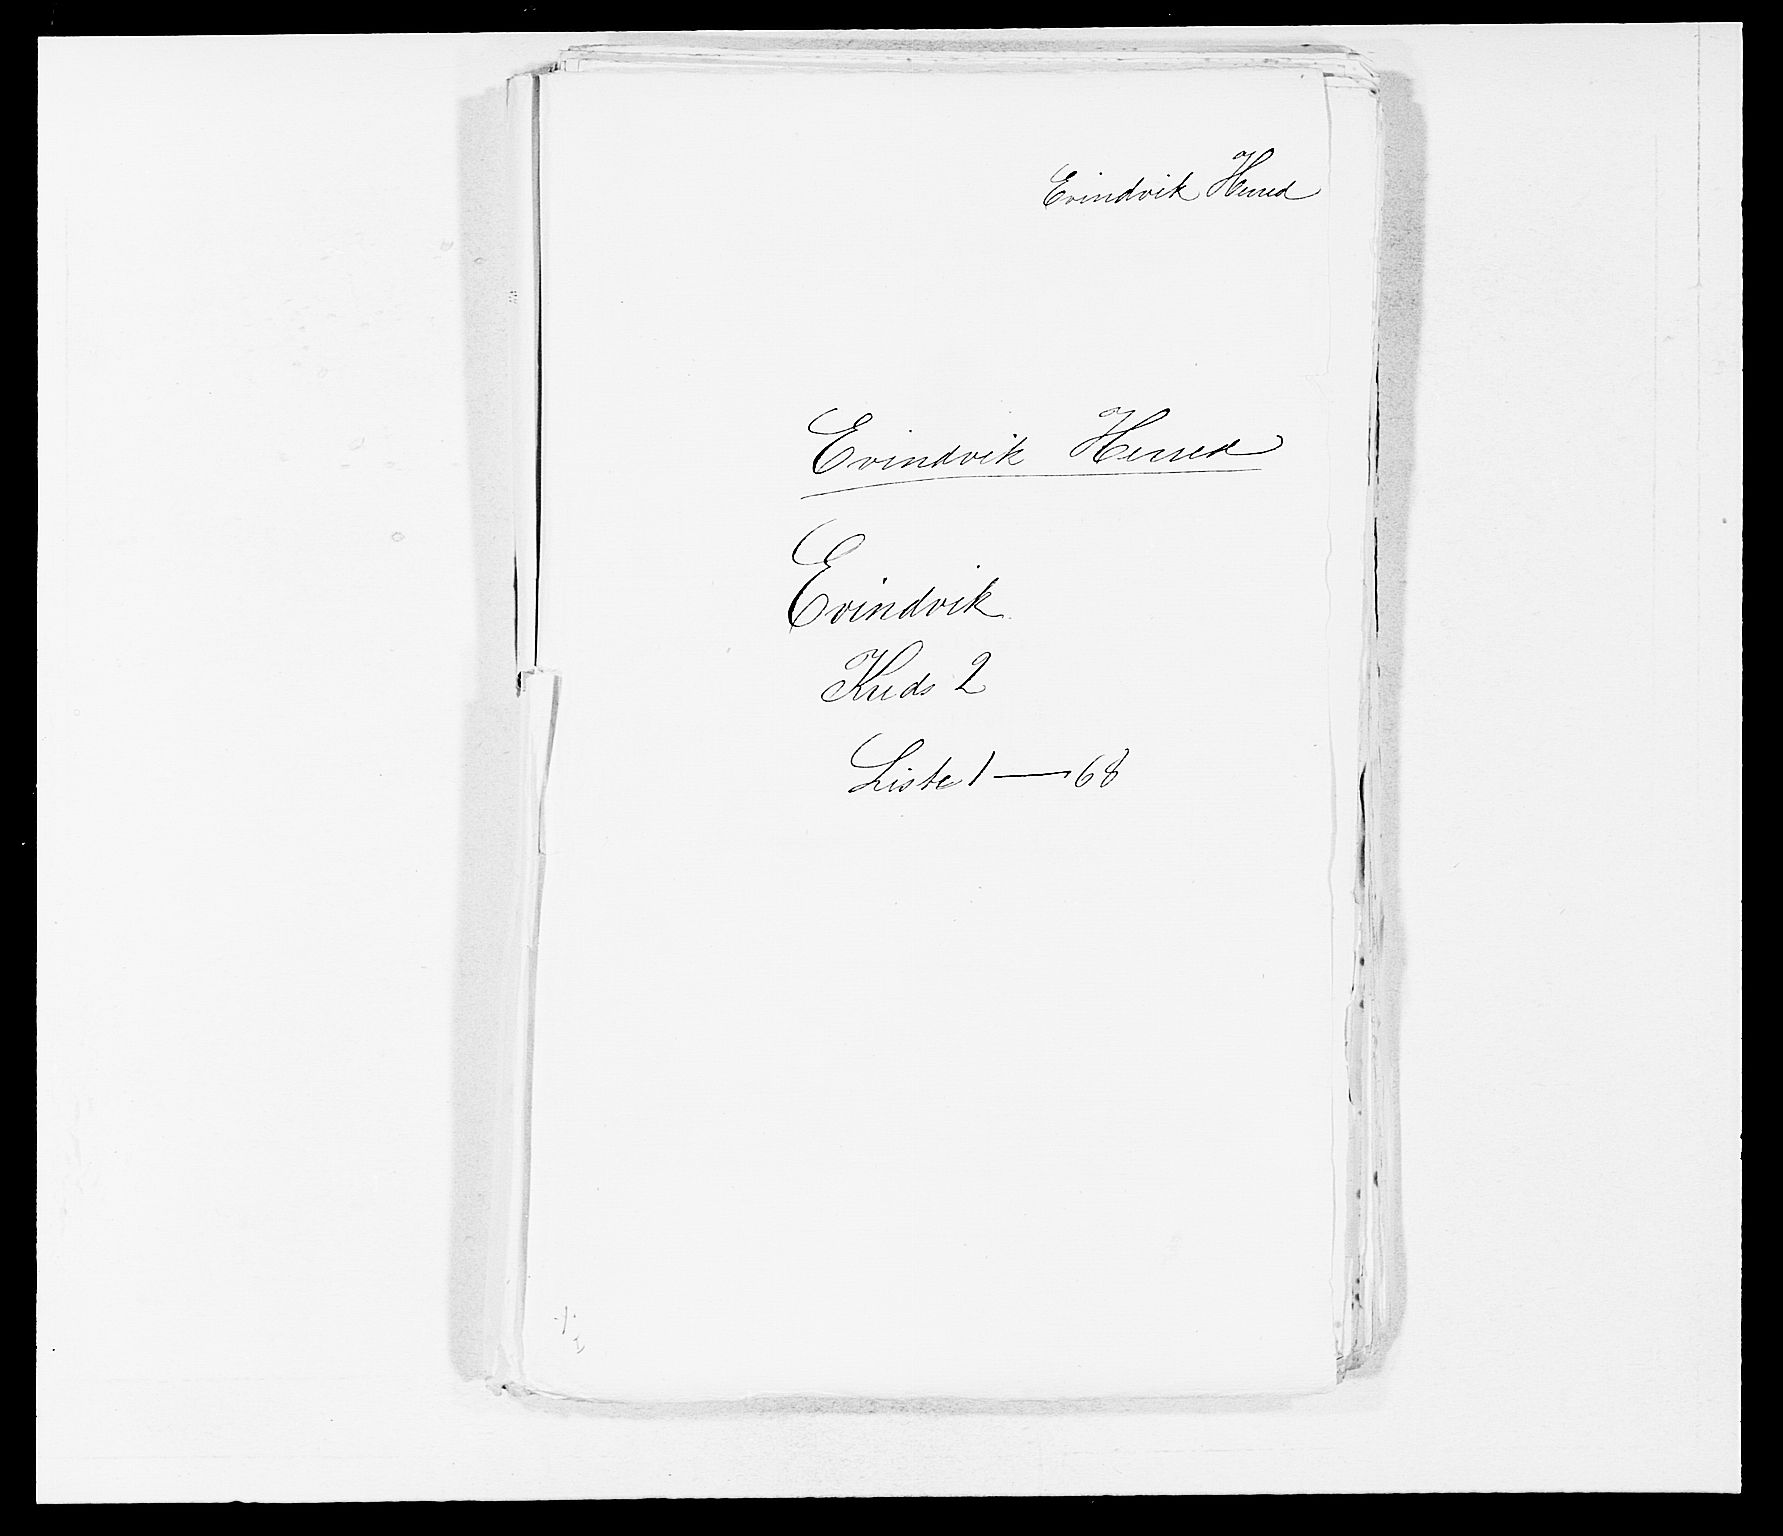 Evindvik Herred
Evindvik Herred
Evindvik
Kreds 2
Liste 1 — 68